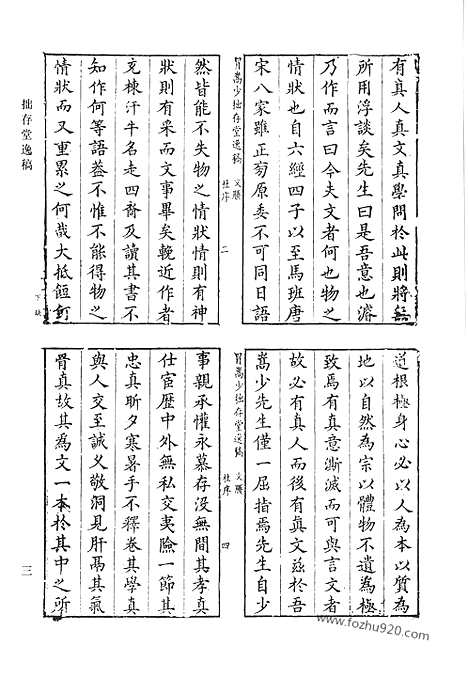 有真人真文真學問於此則將無
所用浮談矣先生曰是吾意也濬
乃作而言曰今夫文者何也物之
情狀也自六經四子以至馬班唐
宋八家雖正匃原委不可同日語
胃嵩少拙存堂逸稿 文牘 杜序 二
然皆能不失物之情狀情則有神
狀則有采而文事畢矣輓近作者
充棟汗牛名走四裔及讀其書不
知作何等語葢不惟不能得物之
情狀而又重累之何哉大抵餖飣
下缺
道根極身心必以人為本以質為
地以自然為宗以體物不遺為極
致焉有真意澌滅而可與言文者
故必有真人而後有真文茲於吾
嵩少先生僅一屈指焉先生自少
胃嵩少拙存堂逸稿 文牘 杜序 四
事親承懽永慕存沒無間其孝真
仕宦歷中外無私交夷險一節其
忠真昕夕寒暑手不釋卷其學真
與人交至誠乂敬洞見肝鬲其氣
骨真故其為文一本於其中之所
拙存堂逸稿
三
www.fozhu920.com